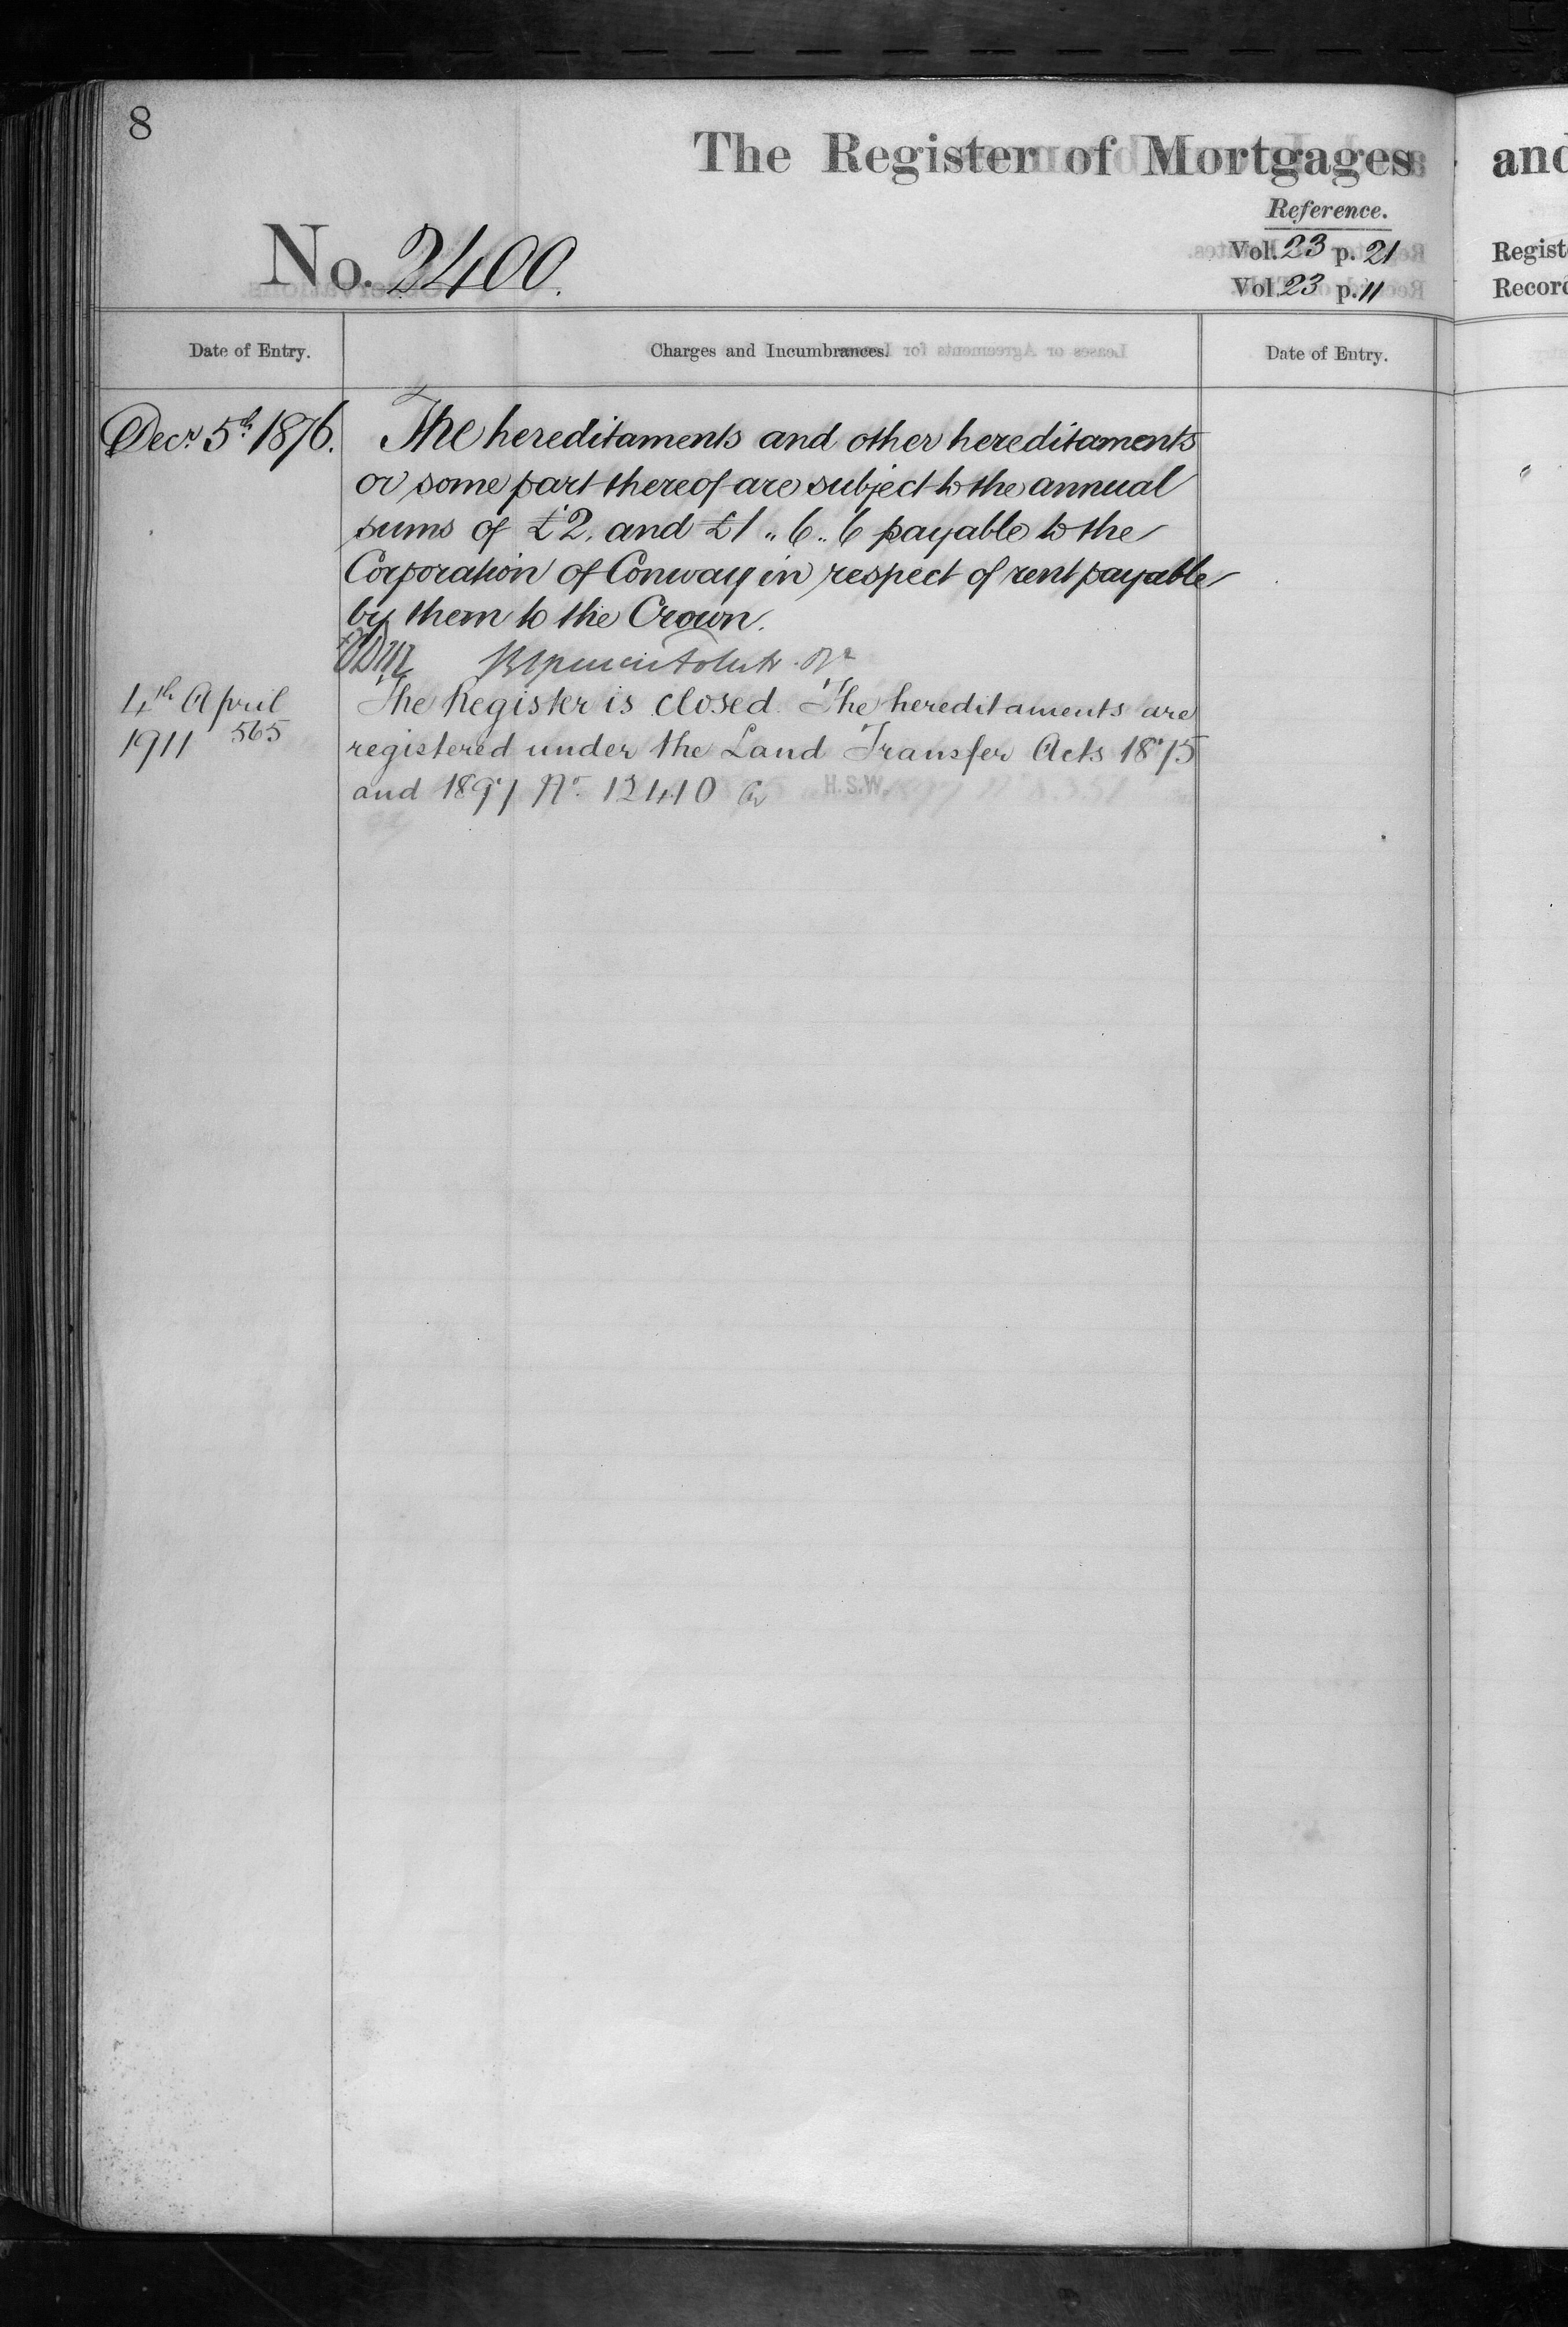 8
The Register of Mortgages and
Reference.
No. 2400.
Vol. 23 p. 21 Regist
Vol. 23 p. 11 Record
Date of Entry. Charges and Incumbrances. Date of Entry.
Decr 5th 1876. The hereditaments and other hereditaments
or some part thereof are subject to the annual
sums of £2. and £1 " 6 " 6 payable to the
Corporation of Conway in respect of rent payable
by them to the Crown.
4th April The Register is closed. The hereditaments are
1911 565 registered under the Land Transfer Acts 1875
and 1897 No. 12410 H.S.W.